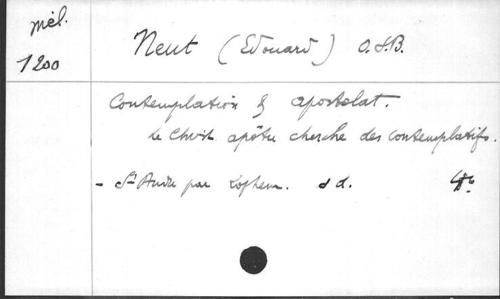 Mél.
1200
Neut (Edouard) O.S.B.
Contemplation & apostolat.
Le Christ apôtre cherche des contemplatifs.
- St André par Lophem. s d.